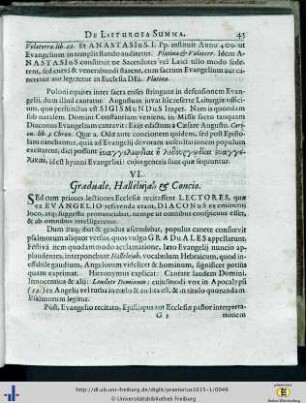 DE LITURGIA SUMMA. 45
Volaterra. lib. 22. Et ANASTASIUS I. Pp. instituit Anno 409. ut
Evangelium in templis stando audiretur. Platina & Volaterr. Idem A-
NASTASIUS constituit ne Sacerdotes vel Laici ullo modo sede-
rent, sed curvi & venerabundi starent, cum sacrum Evangelium aut ca-
neretur aut legeretur in Ecclesia DEI. Platina.
Poloni equites inter sacra enses stringunt in defensionem Evan-
gelij, dum illud cantatur. Augustum juvat hic referre Liturgiæ offici-
um, quo perfunctus est SIGISMUNDUS Imper. Nam is quondam sub
natalem Domini Constantiam veniens, in Missæ sacro tanquam
Diaconus Evangelium cantavit: Exijt edictum à Cæsare Augusto.
lib. 3. Chron. Quæ à Odæ ante concionem quidem, sed post Episto-
lam canebantur, quia ad Evangelij devotam auscultationem populum
excitarent, dici possunt
id est hymni Evangelici: cujus generis sunt quæ sequuntur.
VI.
Graduale, Hallelujah, & Concio.
SEd cum priores lectiones Ecclesiæ recitassent LECTORES, quæ
ex EVANGELIO referenda erant, DIACONUS ex eminenti
loco, suggestu pronunciabat, nempe ut omnibus conspicuus esset,
& ab omnibus intelligeretur.
Dum itaque ibat & gradus ascendebat, populus canere consuevit
psalmorum aliquot versus, quos vulgo GRADUALES appellarunt.
Festivâ item quodam modo acclamatione, læto Evangelij nuncio ap-
plaudentes, interponebant Hallelujah, vocabulum Hebraicum, quod in-
effabile gaudium, Angelorum videlicet & hominum, significet potius
quam exprimat. Hieronymus explicat: Cantate laudem Domini.
Innocentius & alij: Laudate Dominum: cujusmodi vox in Apocalypsi
(19.) ex Angelis vel turba in cœlo & audita est, & in titulo quorundam
Psalmorum legitur.
Post, Evangelio recitato, Episcopus aut Ecclesiæ pastor interpreta-
G 3 tionem
http://dl.ub.uni-freiburg.de/diglit/praetorius1615-1/0049
© Universitätsbibliothek Freiburg